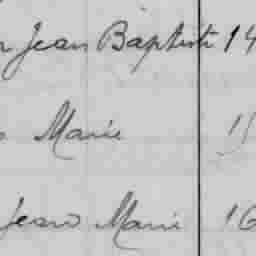 Jean Baptiste 14
Marie 15
Jean Marie 16